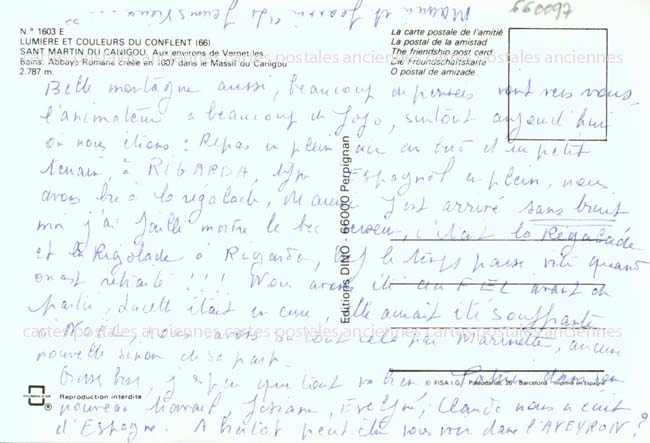 660097
N.° 1603 E
LUMIERE ET COULEURS DU CONFLENT (66)
SANT MARTIN DU CANIGOU. Aux environs de Vernet-les-
Bains: Abbaye Romane créée en 1007 dans le Massif du Canigou
2.787 m.
La carte postale de l'amitié
La postal de la amistad
The friendship post card
Die Freundschaftskarte
O postal de amizade
Belle montagne aussi, beaucoup de pensées vont vers vous,
l'animateur a beaucoup de Jojo, surtout aujourd'hui
où nous étions : Repas en plein air au bord d'un petit
à RIGARDA, Espagnol en plein, nous
avons bu à la régalade, y est arrivé sans bruit
moi j'ai c'était la Régalade
et la Rigolade à Rigarda, le temps passe vite quand
on est retraité !!! Nous avons été au FEL avant de
partir, était en cure, elle aurait été souffrante
à NOËL, nous avons su tout cela par Marinette, aucune
nouvelle sinon de sa part.
Grosse bise, j'espère que tout va bien
nouveau travail Josiane, Claude nous a écrit
d'Espagne. A bientôt peut-être vous voir dans l'AVEYRON ?
Editions DINO - 66000 Perpignan
cartes postales anciennes cartes postales anciennes cartes postales anciennes
Reproduction interdite
© FISA I.G. - Palaudarias, 26 - Barcelona - Imprimé en Espagne